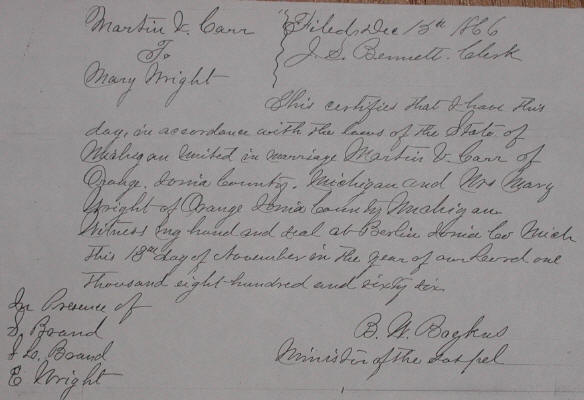 Martin V. Carr Filed Dec 15th 1866
To J. S. Bennett. Clerk
Mary Wright
This certifies that I have this
day, in accordance with the laws of the State of
Michigan united in marriage Martin V. Carr of
Orange. Ionia County. Michigan and Mrs Mary
Wright of Orange Ionia County Michigan
Witness my hand and seal at Berlin Ionia Co Mich
this 18th day of November in the year of our Lord one
thousand eight hundred and sixty six.
In Presence of
S. Board
Board
E Wright
B. W.
Minister of the Gospel